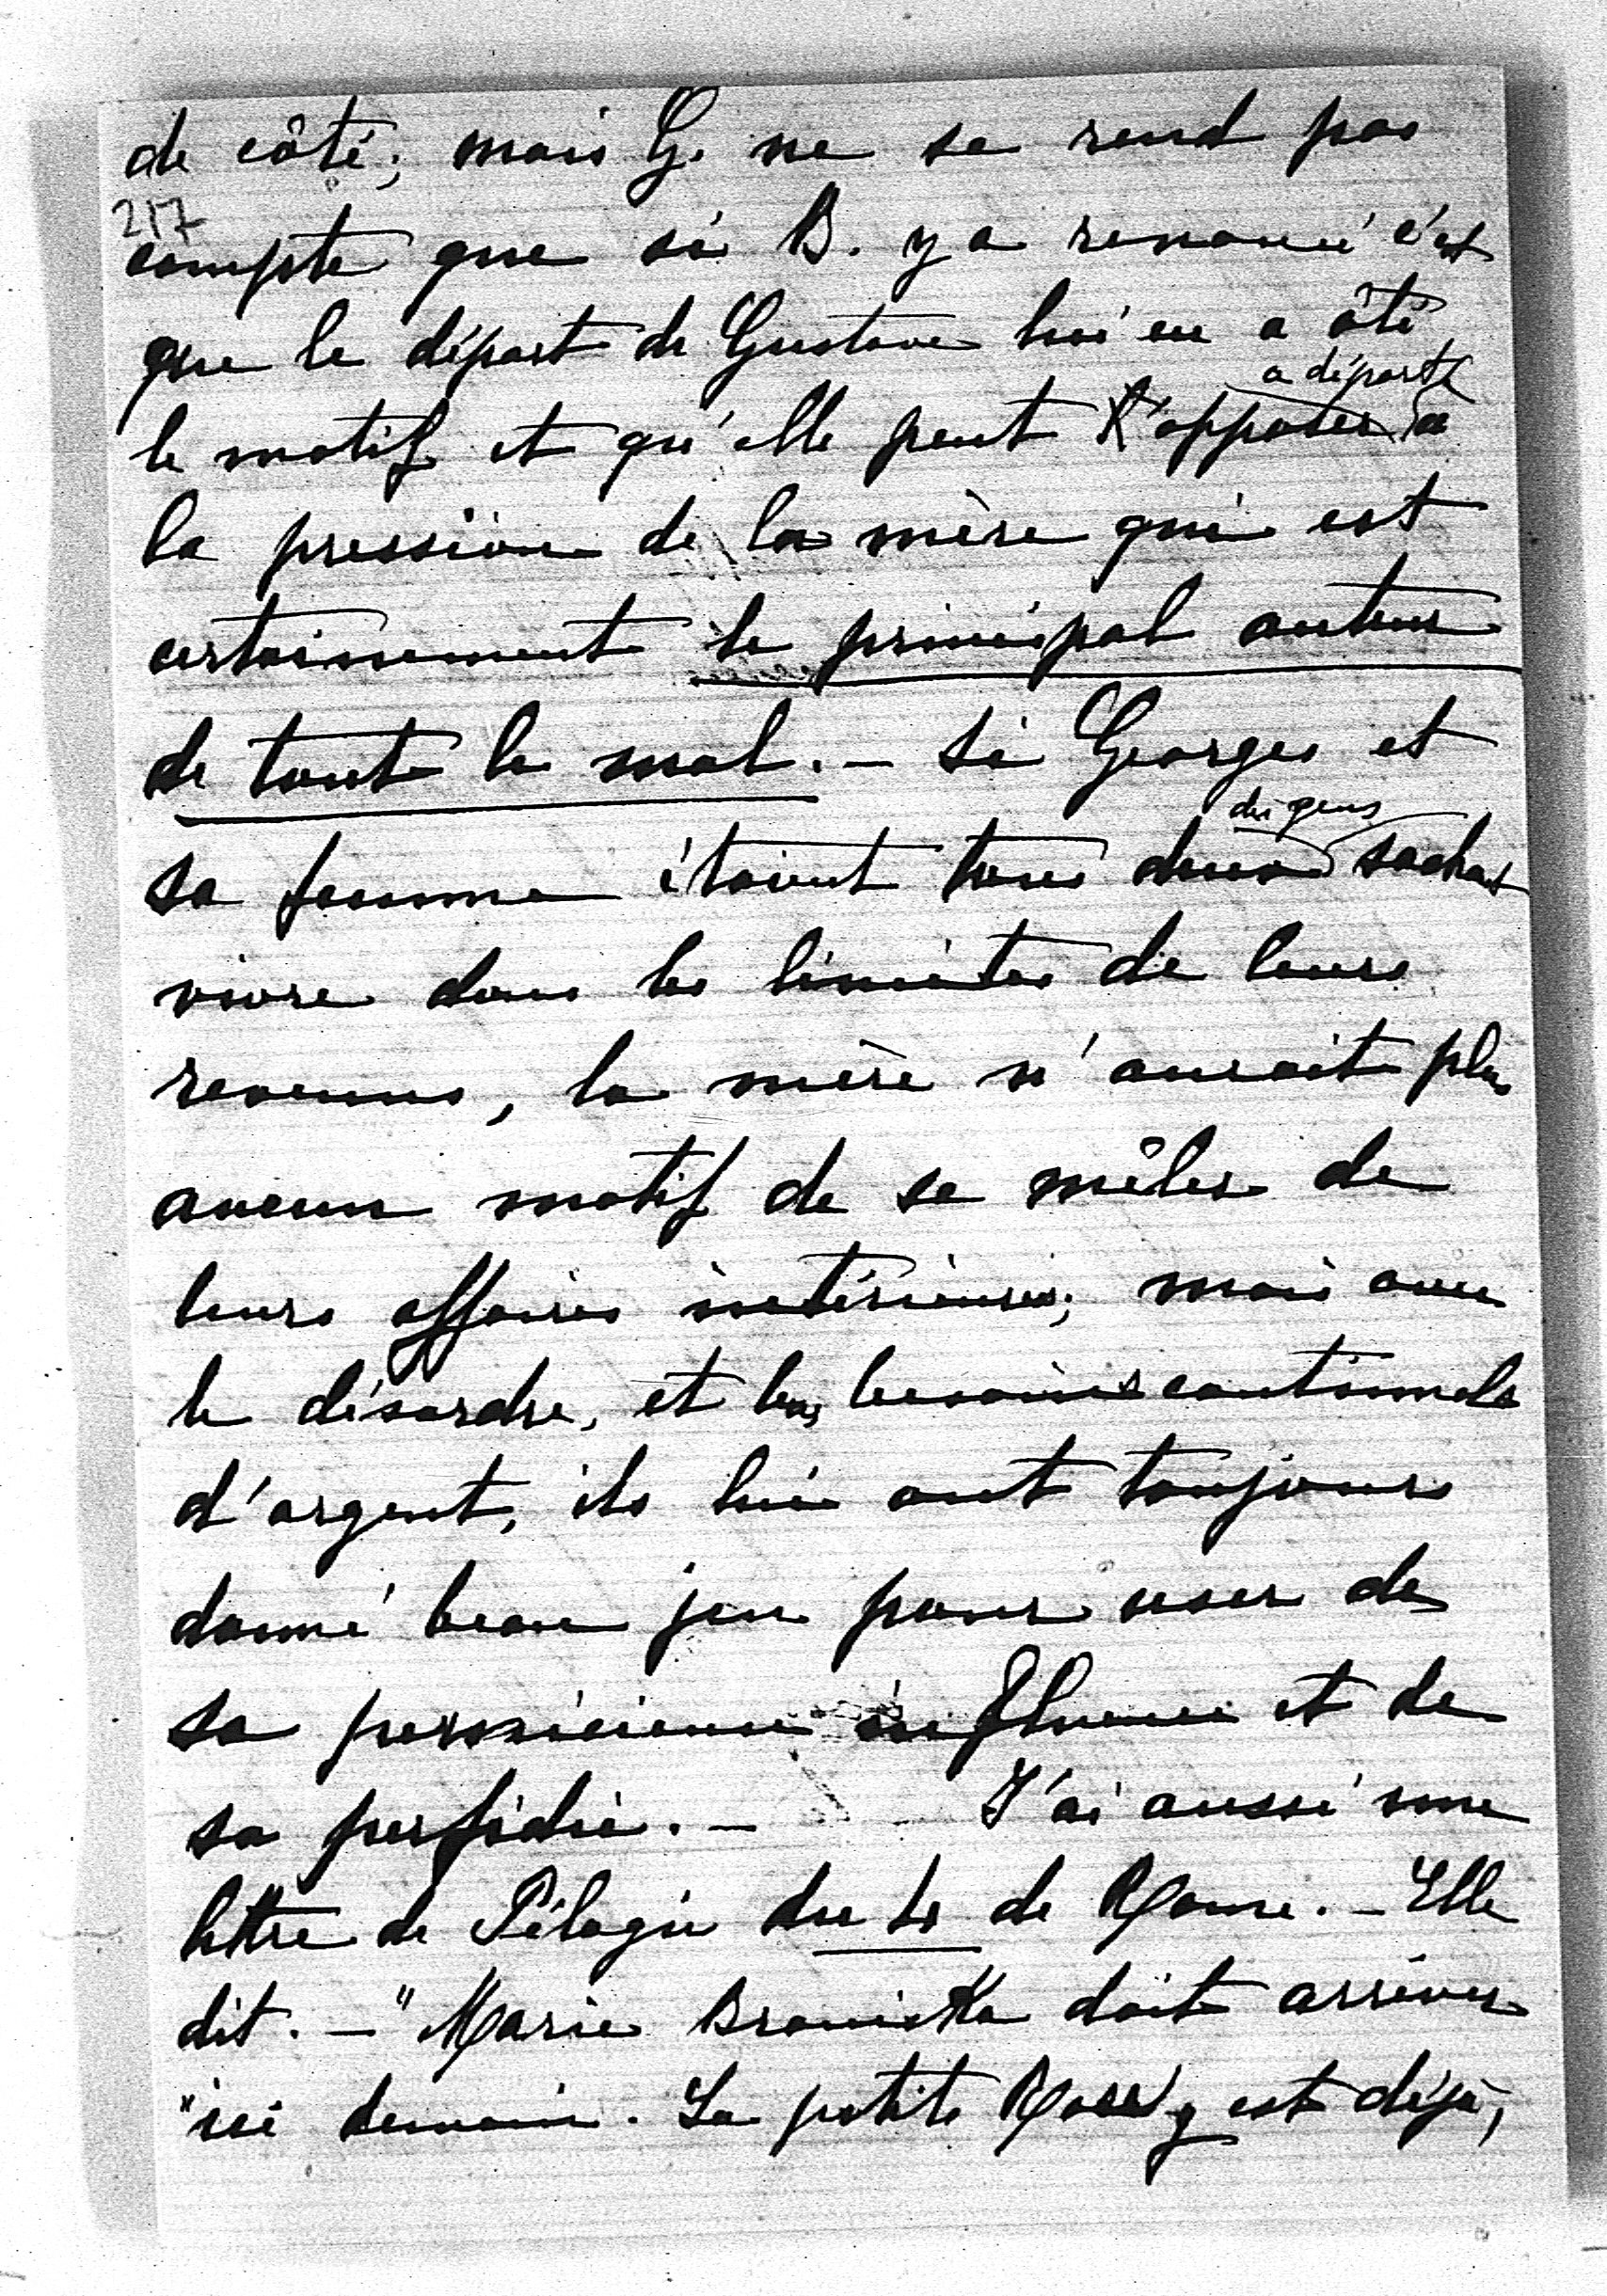 de côté; mais G. ne se rend pas
217
compte que si B. y a renoncé c'est
que le départ de Gustave lui en a ôté
a départ
le motif et qu'elle peut l'opposer à
la pression de la mère qui est
certainement le principal auteur
de tout le mal. — Si Georges et
des gens
sa femme étaient tous deux sachant
vivre dans les limites de leurs
revenus, la mère n'aurait plus
aucun motif de se mêler de
leurs affaires intérieures; mais avec
le désordre, et leurs besoins continuels
d'argent, ils lui ont toujours
donné beau jeu pour user de
sa pernicieuse influence et de
sa perfidie. — J'ai aussi une
lettre de Pélagie du de Rome. — Elle
dit. — "Marie Branicka doit arriver
"ici demain. La petite y est déjà,